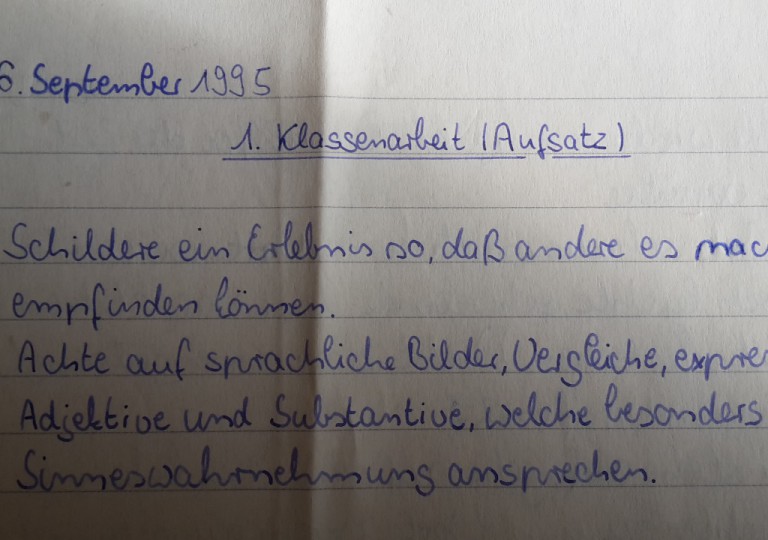 6. September 1995
1. Klassenarbeit (Aufsatz)
Schildere ein Erlebnis so, daß andere es
empfinden können.
Achte auf sprachliche Bilder, Vergleiche,
Adjektive und Substantive, welche besonders
Sinneswahrnehmung ansprechen.